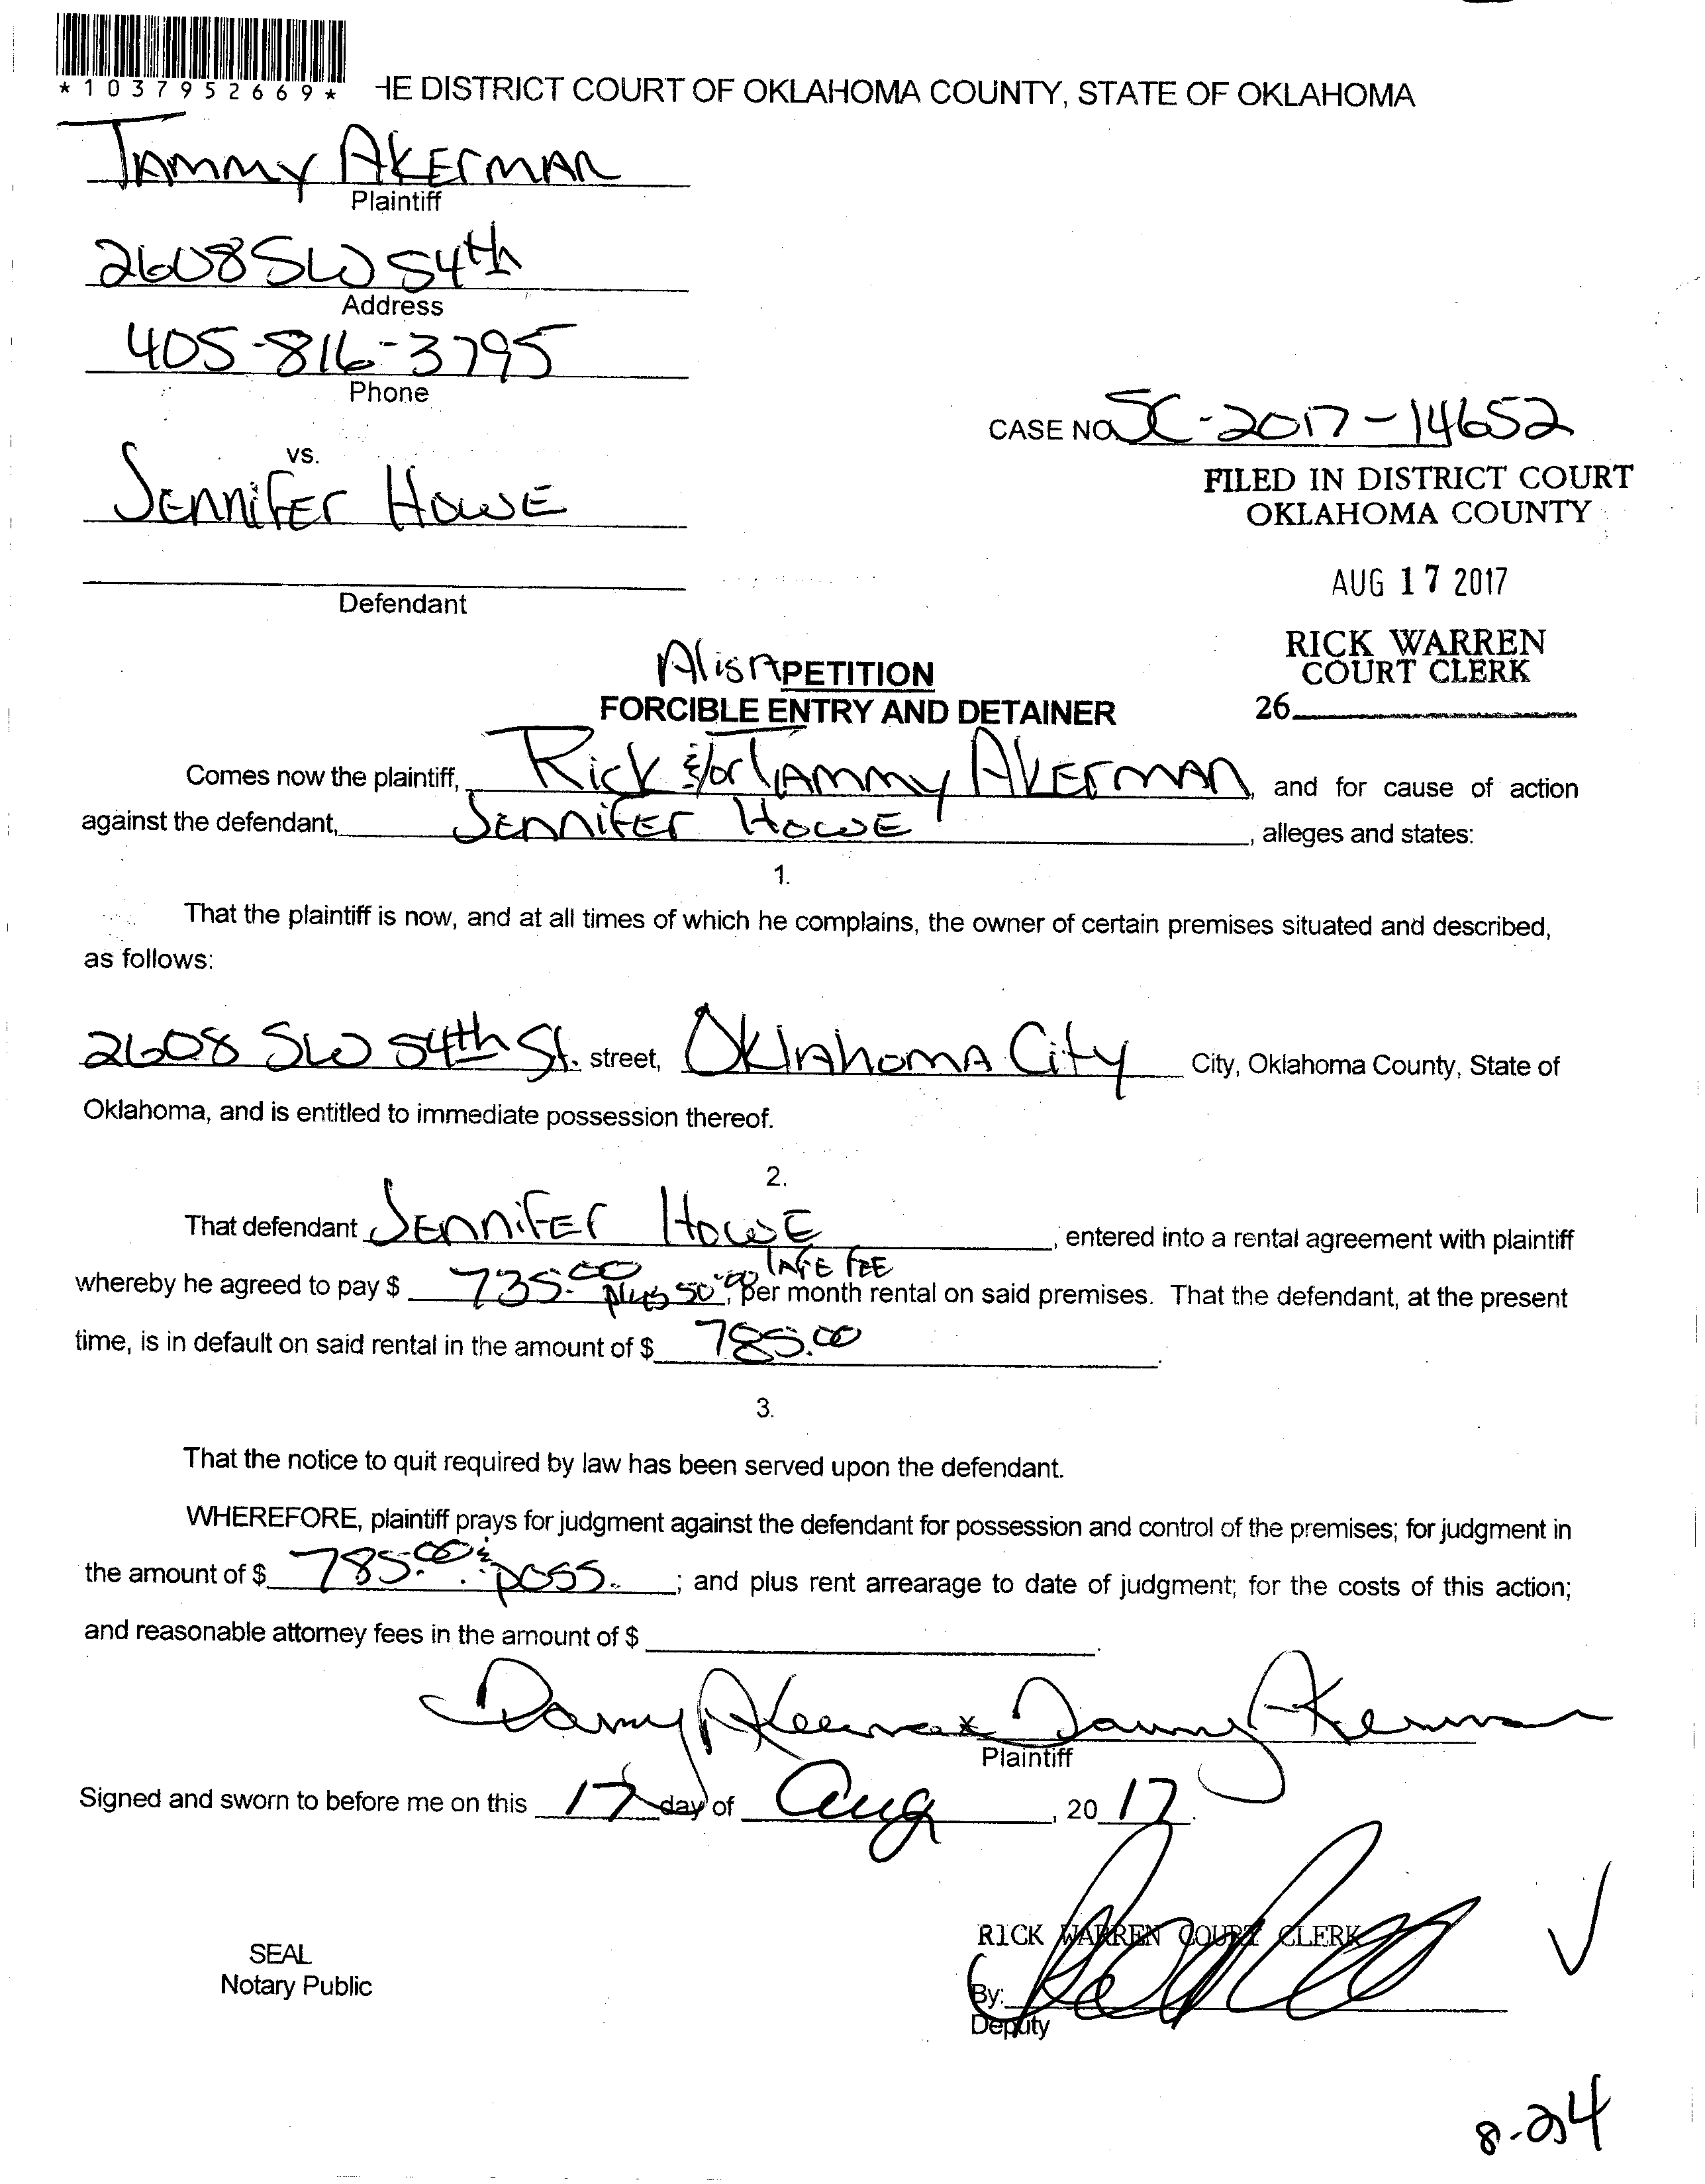 *1037952669*
HE DISTRICT COURT OF OKLAHOMA COUNTY, STATE OF OKLAHOMA
TAMMY AKERMAN
Plaintiff
2608 SW 54th
Address
405-816-3795
Phone
CASE NO. SC-2017-14652
vs.
FILED IN DISTRICT COURT
OKLAHOMA COUNTY
JENNIFER HOWE
AUG 17 2017
Defendant
RICK WARREN
COURT CLERK
26
Alias PETITION
FORCIBLE ENTRY AND DETAINER
Comes now the plaintiff, Rick &/or TAMMY AKERMAN, and for cause of action
against the defendant, JENNIFER HOWE, alleges and states:
1.
That the plaintiff is now, and at all times of which he complains, the owner of certain premises situated and described,
as follows:
2608 SW 54th St. street, OKlAhomA City City, Oklahoma County, State of
Oklahoma, and is entitled to immediate possession thereof.
2.
That defendant JENNIFER HOWE, entered into a rental agreement with plaintiff
LATE FEE
whereby he agreed to pay $ 735.00 plus 50.00, per month rental on said premises. That the defendant, at the present
time, is in default on said rental in the amount of $ 785.00.
3.
That the notice to quit required by law has been served upon the defendant.
WHEREFORE, plaintiff prays for judgment against the defendant for possession and control of the premises; for judgment in
the amount of $ 785.00 & poss.; and plus rent arrearage to date of judgment; for the costs of this action;
and reasonable attorney fees in the amount of $.
Tammy Akerman Tammy Akerman
Plaintiff
Signed and sworn to before me on this 17 day of Aug, 2017.
RICK WARREN COURT CLERK
SEAL
Notary Public
By:
Deputy
8-24